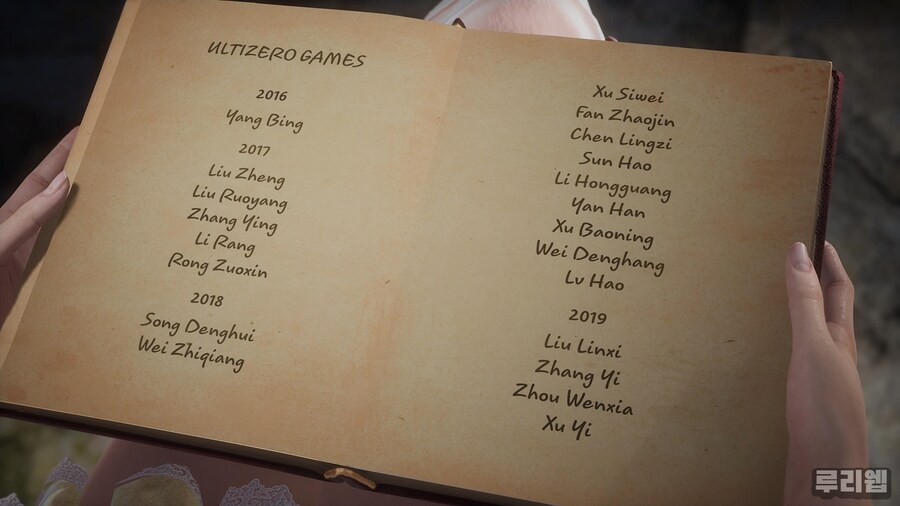 ULTIZERO GAMES
2016
Yang Bing
2017
Liu Zheng
Liu Ruoyang
Zhang Ying
Li Rang
Rong Zuoxin
2018
Song Denghui
Wei Zhiqiang
Xu Siwei
Fan Zhaojin
Chen Lingzi
Sun Hao
Li Hongguang
Yan Han
Xu Baoning
Wei Denghang
Lv Hao
2019
Liu Linxi
Zhang Yi
Zhou Wenxia
Xu Yi
루리웹